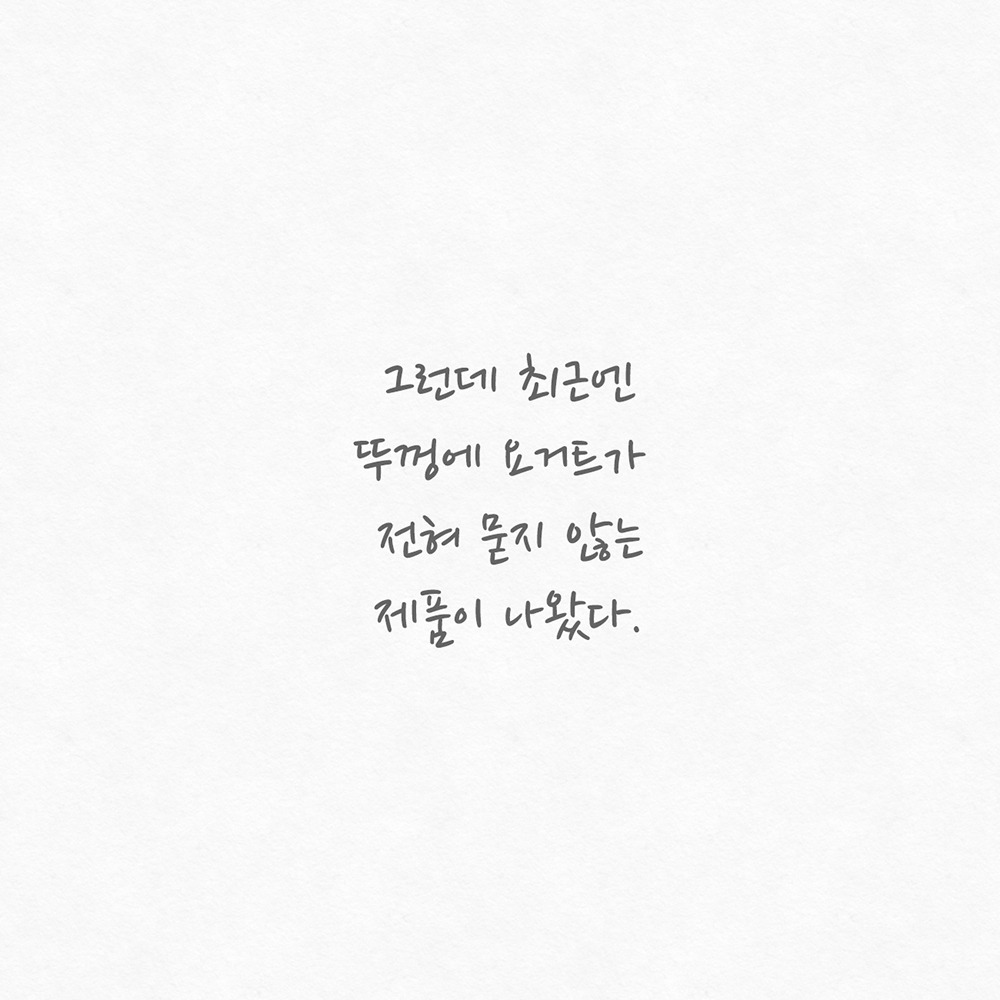 그런데 최근엔
뚜껑에 요거트가
전혀 묻지 않는
제품이 나왔다.